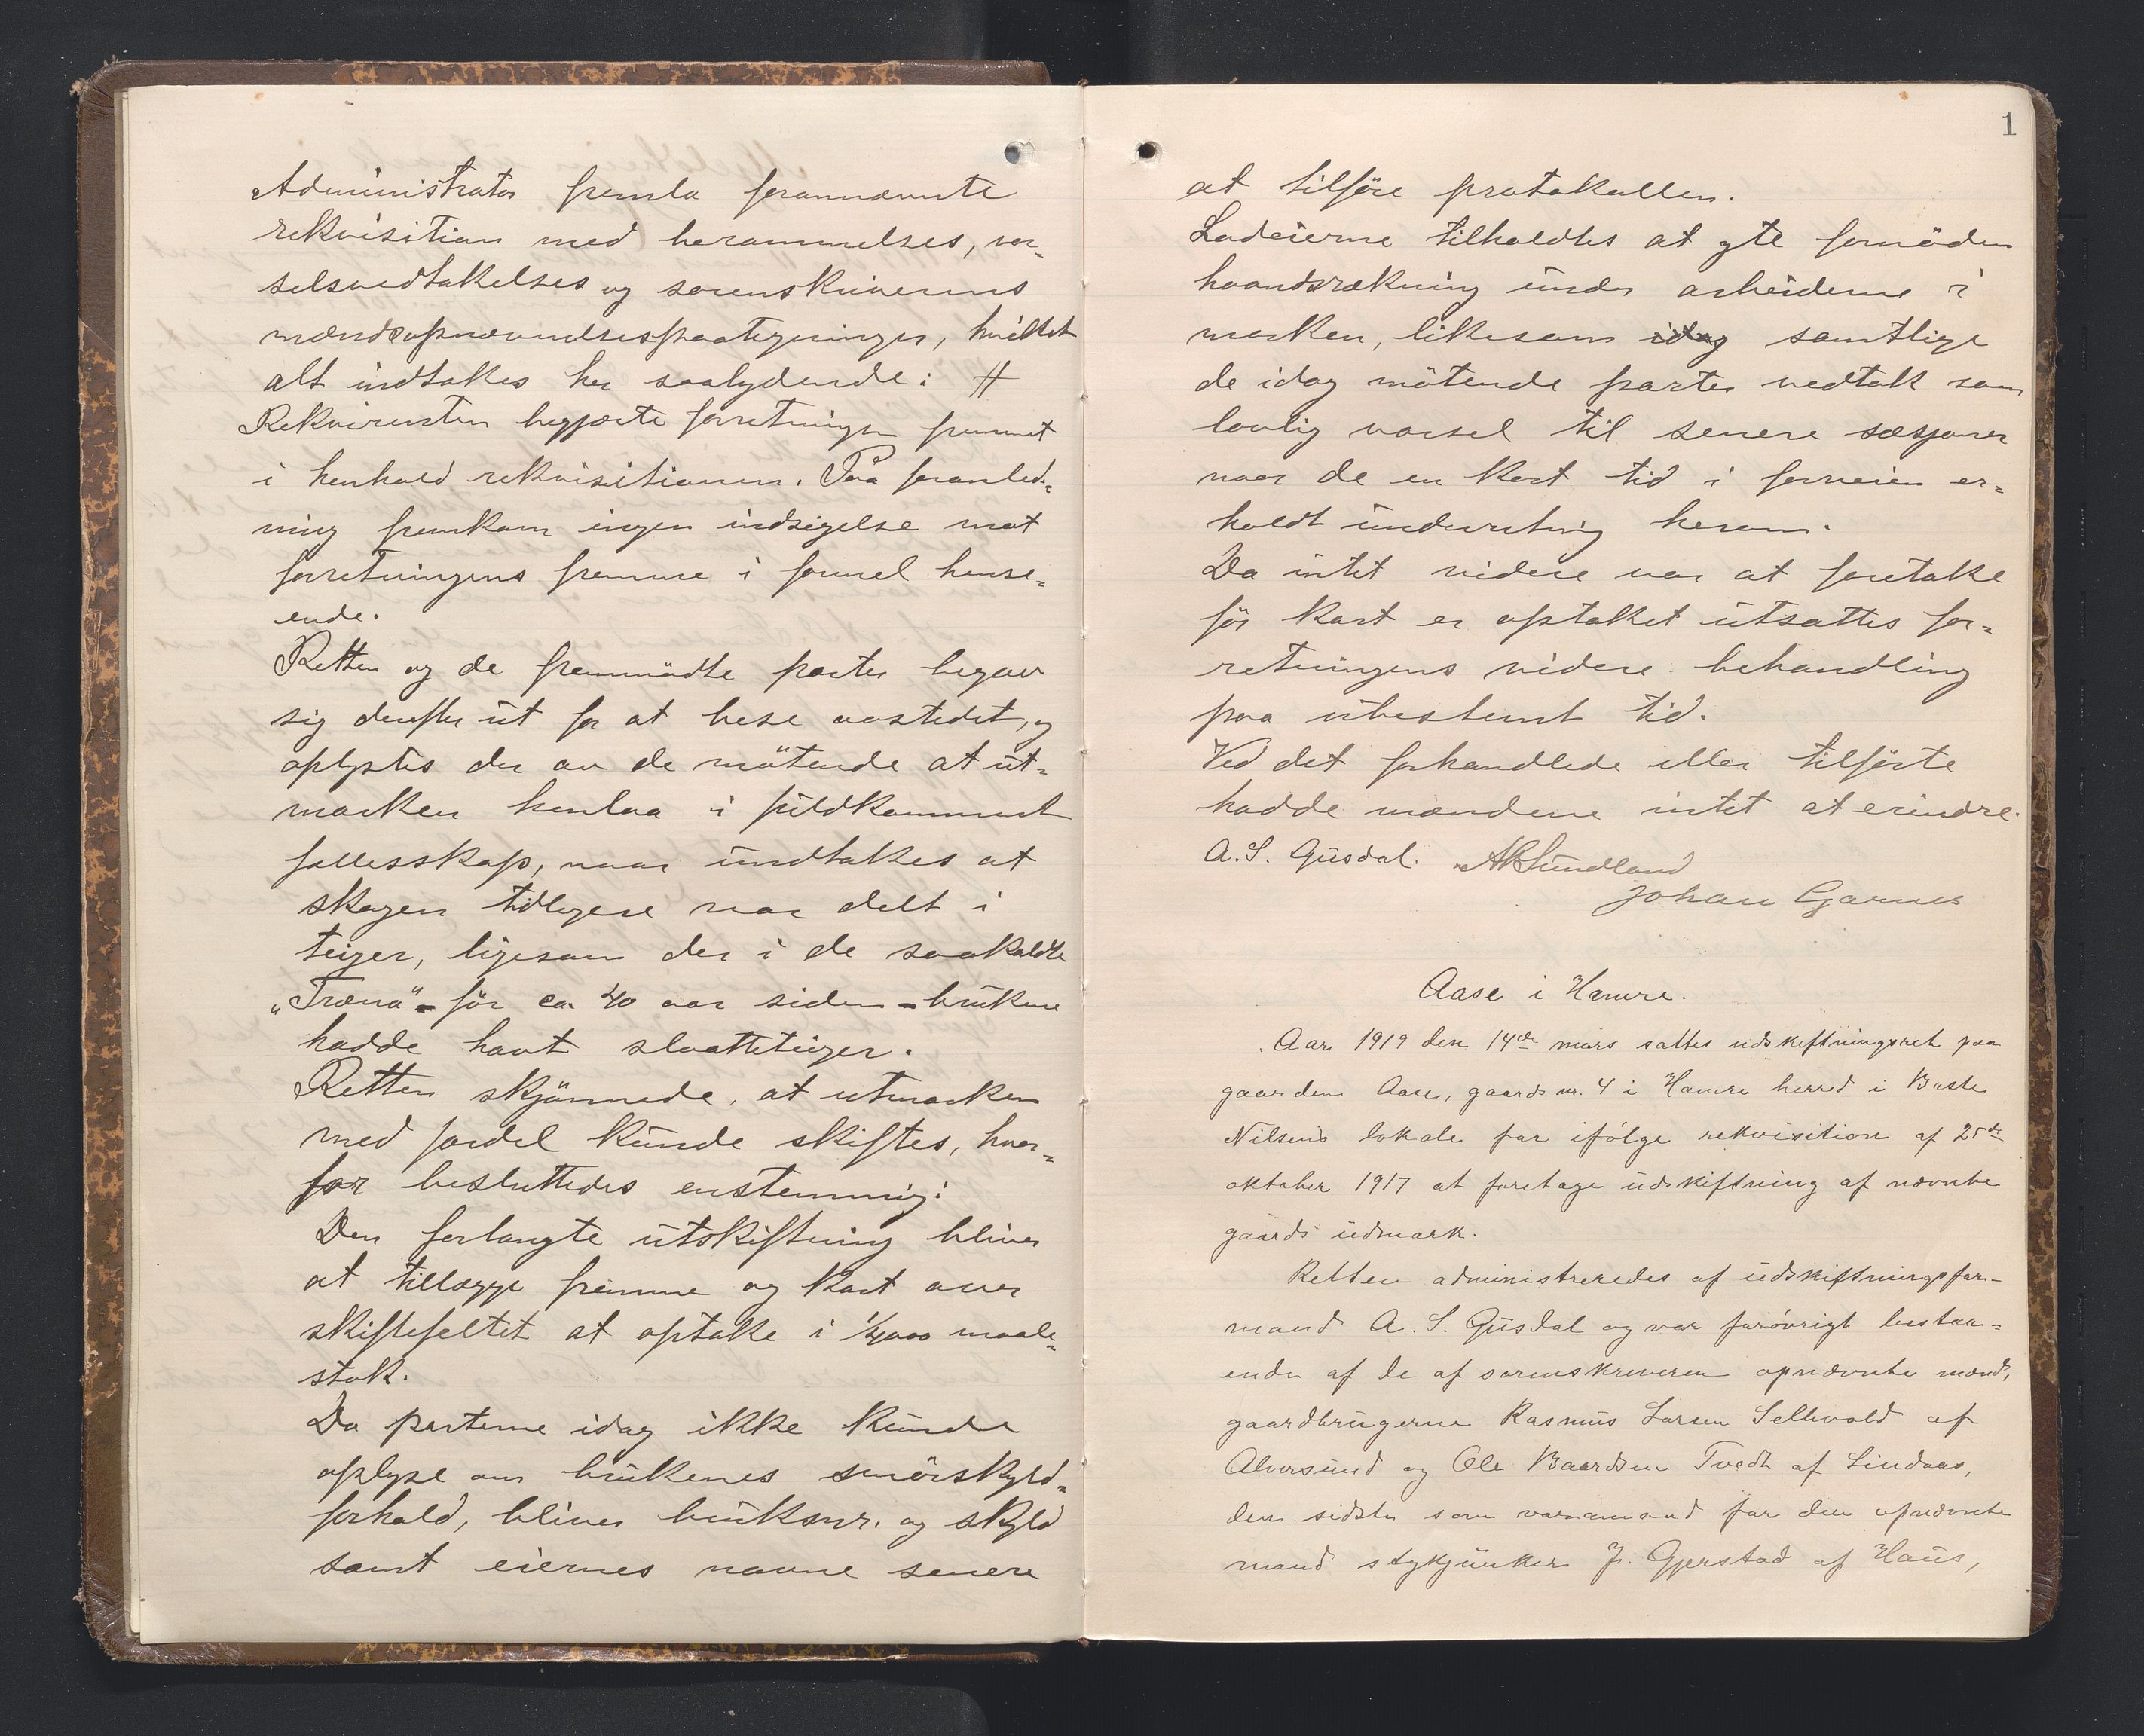 Administrator fremla forannævnte
rekvisition med berammelses, var-
selsvedtakelses og sorenskriverens
mændsopnævnelsespaategninger, hvilket
alt indtakes her saalydende: #
Rekvirenten begjærte forretningen fremmet
i henhold rekvisitionen. Paa foranled-
ning fremkom ingen indsigelse mot
forretningens fremme i formel hense-
ende.
Retten og de fremmødte parter begav
sig derefter ut for at bese aastedet, og
oplystes der av de møtende at ut-
marken henlaa i fuldkomment
fællesskap, naar undtakes at
skogen tidligere var delt i
teiger, ligesom der i de saakaldte
„Træna" - før ca 40 aar siden - brukene
hadde havt slaatteteiger.
Retten skjønnede, at utmarken
med fordel kunde skiftes, hvor-
for besluttedes enstemmig:
Den forlangte utskiftning bliver
at tillægge fremme og kart over
skiftefeltet at optake i 1/2000 maale-
stok.
Da parterne idag ikke kunde
oplyse om brukenes smørskyld-
forhold, bliver bruksnr. og skyld
samt eiernes navne senere
1
at tilføre protokollen.
Lodeierne tilholdtes at yte fornøden
haandsrækning under arbeiderne i
marken, likesom idag samtlige
de idag møtende parter vedtok som
lovlig varsel til senere sæsjoner
naar de en kort tid i forveien er-
holdt underretning herom.
Da intet videre var at foretake
før kart er optaket utsattes for-
retningens videre behandling
paa ubestemt tid.
Ved det forhandlede eller tilførte
hadde mændene intet at erindre.
A. S. Gusdal. A K Sundland
Johan Garnes
Aase i Hamre.
Aar 1919 den 14de mars sattes udskiftningsret paa
gaarden Aase, gaards nr. 4 i Hamre herred i Baste
Nilsens lokale for ifølge rekvisition af 25de
oktober 1917 at foretage udskiftning af nævnte
gaards udmark.
Retten administreredes af udskiftningsfor-
mand A. S. Gusdal og var forøvrigt bestaa-
ende af de af sorenskriveren opnævnte mænd,
gaardbrugerne Rasmus Larsen Sellevold af
Alversund og Ole Baardsen Tvedt af Lindaas,
den sidste som varamand for den opnævnte
mand stykjunker J. Gjerstad af Haus,